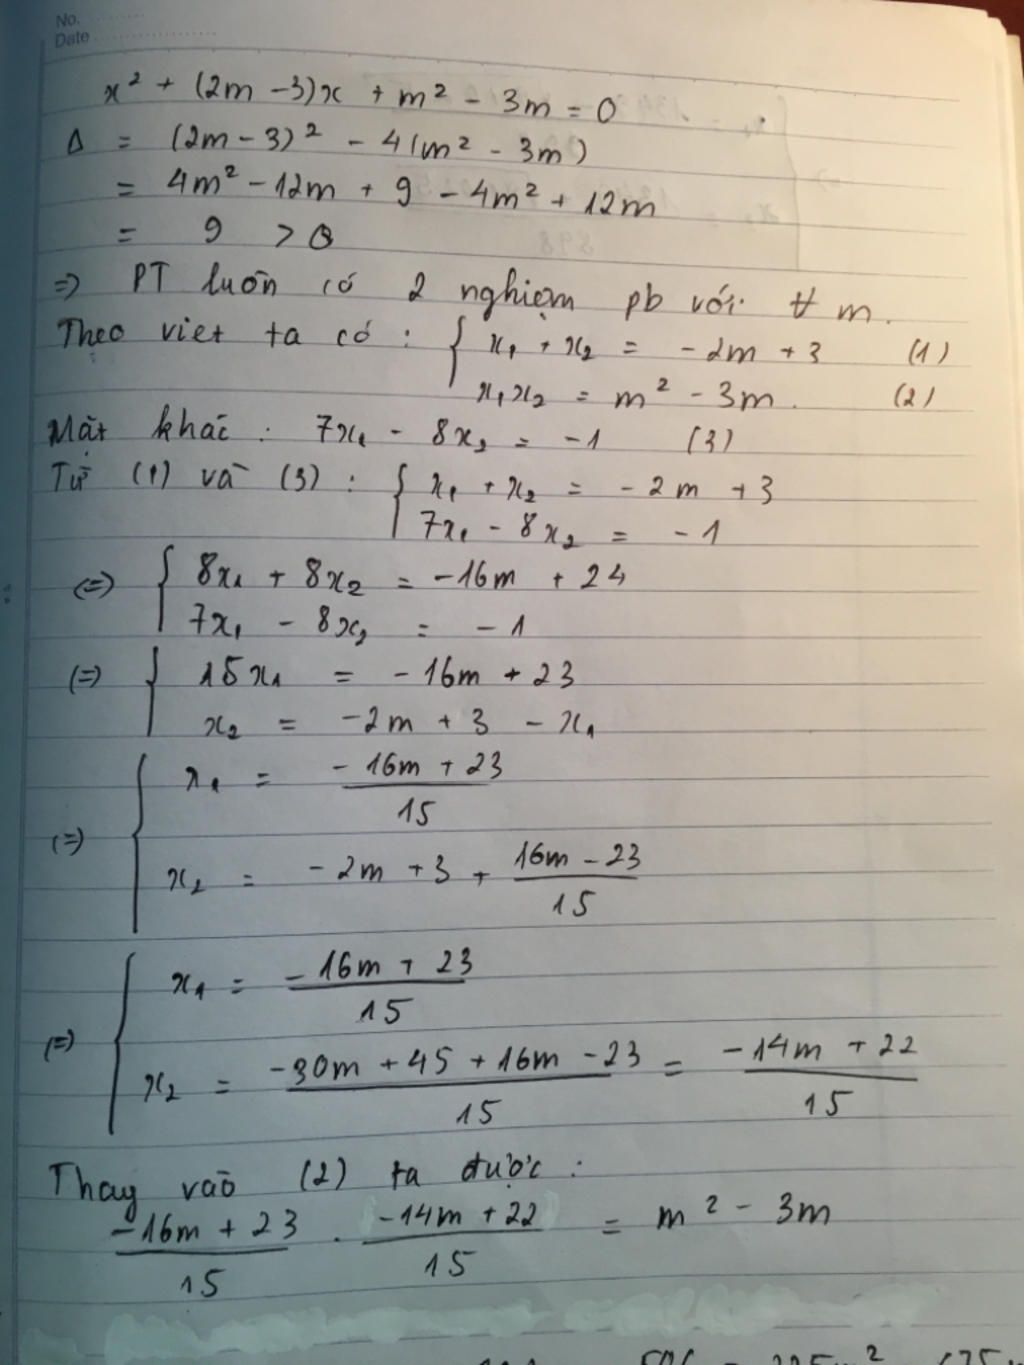 No.
Date
x² + (2m - 3)x + m² - 3m = 0
Δ = (2m - 3)² - 4(m² - 3m)
= 4m² - 12m + 9 - 4m² + 12m
= 9 > 0
=> PT luôn có 2 nghiệm pb với ∀ m.
Theo viet ta có : { x₁ + x₂ = - 2m + 3 (1)
x₁x₂ = m² - 3m. (2)
Mặt khác : 7x₁ - 8x₂ = -1 (3)
Từ (1) và (3) : { x₁ + x₂ = - 2m + 3
7x₁ - 8x₂ = - 1
(=) { 8x₁ + 8x₂ = -16m + 24
7x₁ - 8x₂ = - 1
(=) { 15x₁ = - 16m + 23
x₂ = -2m + 3 - x₁
(=) { x₁ = - 16m + 23 / 15
x₂ = - 2m + 3 + 16m - 23 / 15
(=) { x₁ = - 16m + 23 / 15
x₂ = -30m + 45 + 16m - 23 / 15 = -14m + 22 / 15
Thay vào (2) ta được :
-16m + 23 / 15 . -14m + 22 / 15 = m² - 3m